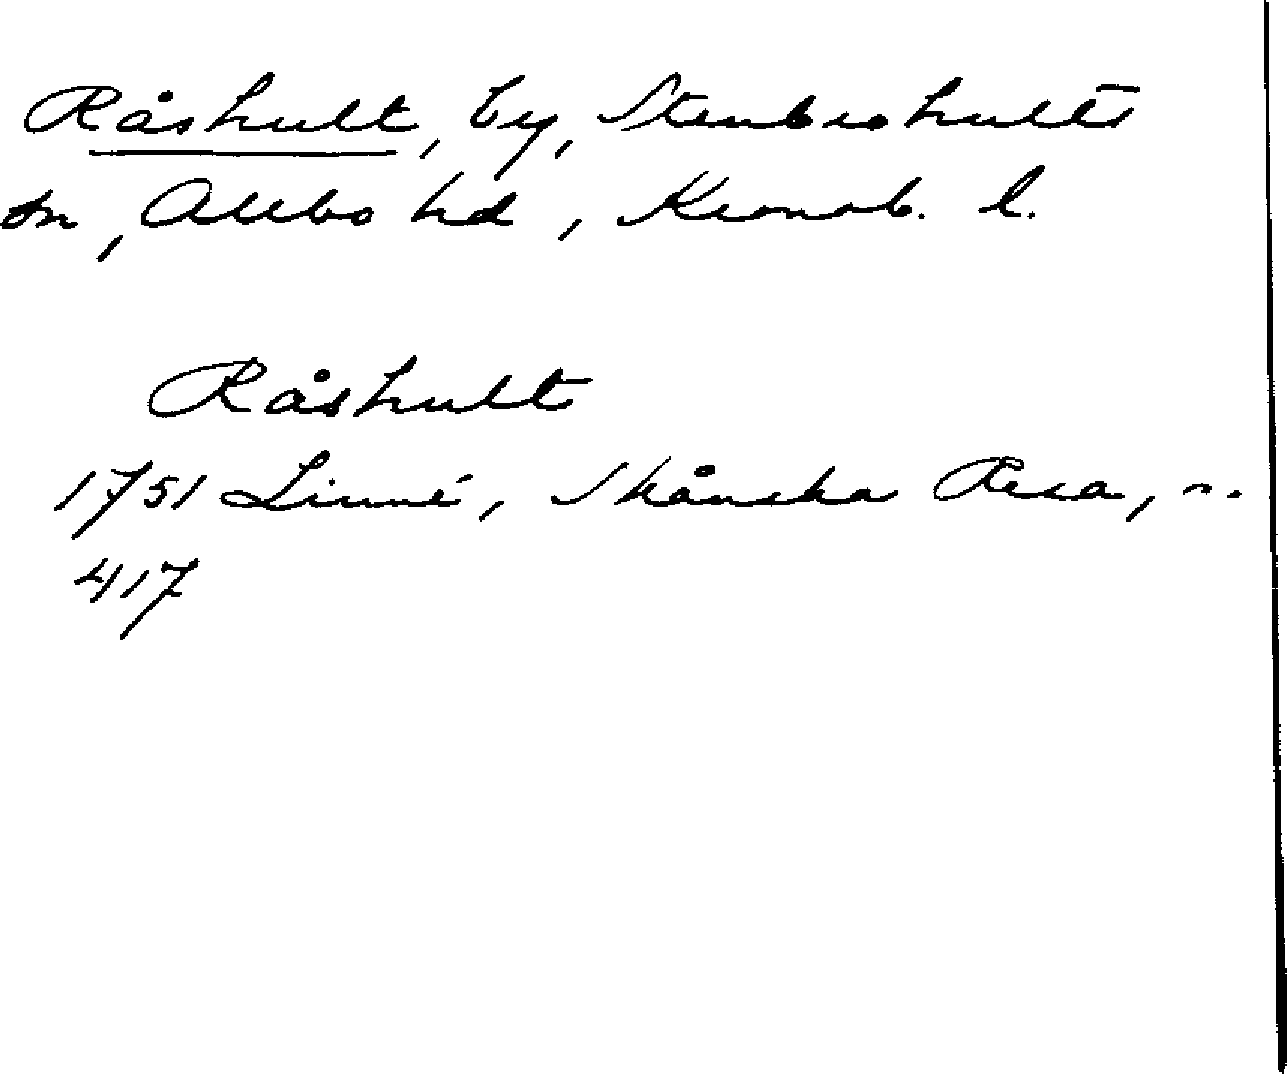 Råshult, by, Stenbrohults
sn, Allbo hd, Kronob. l.
Råshult
1751 Linné, Skånska Resa, s.
417